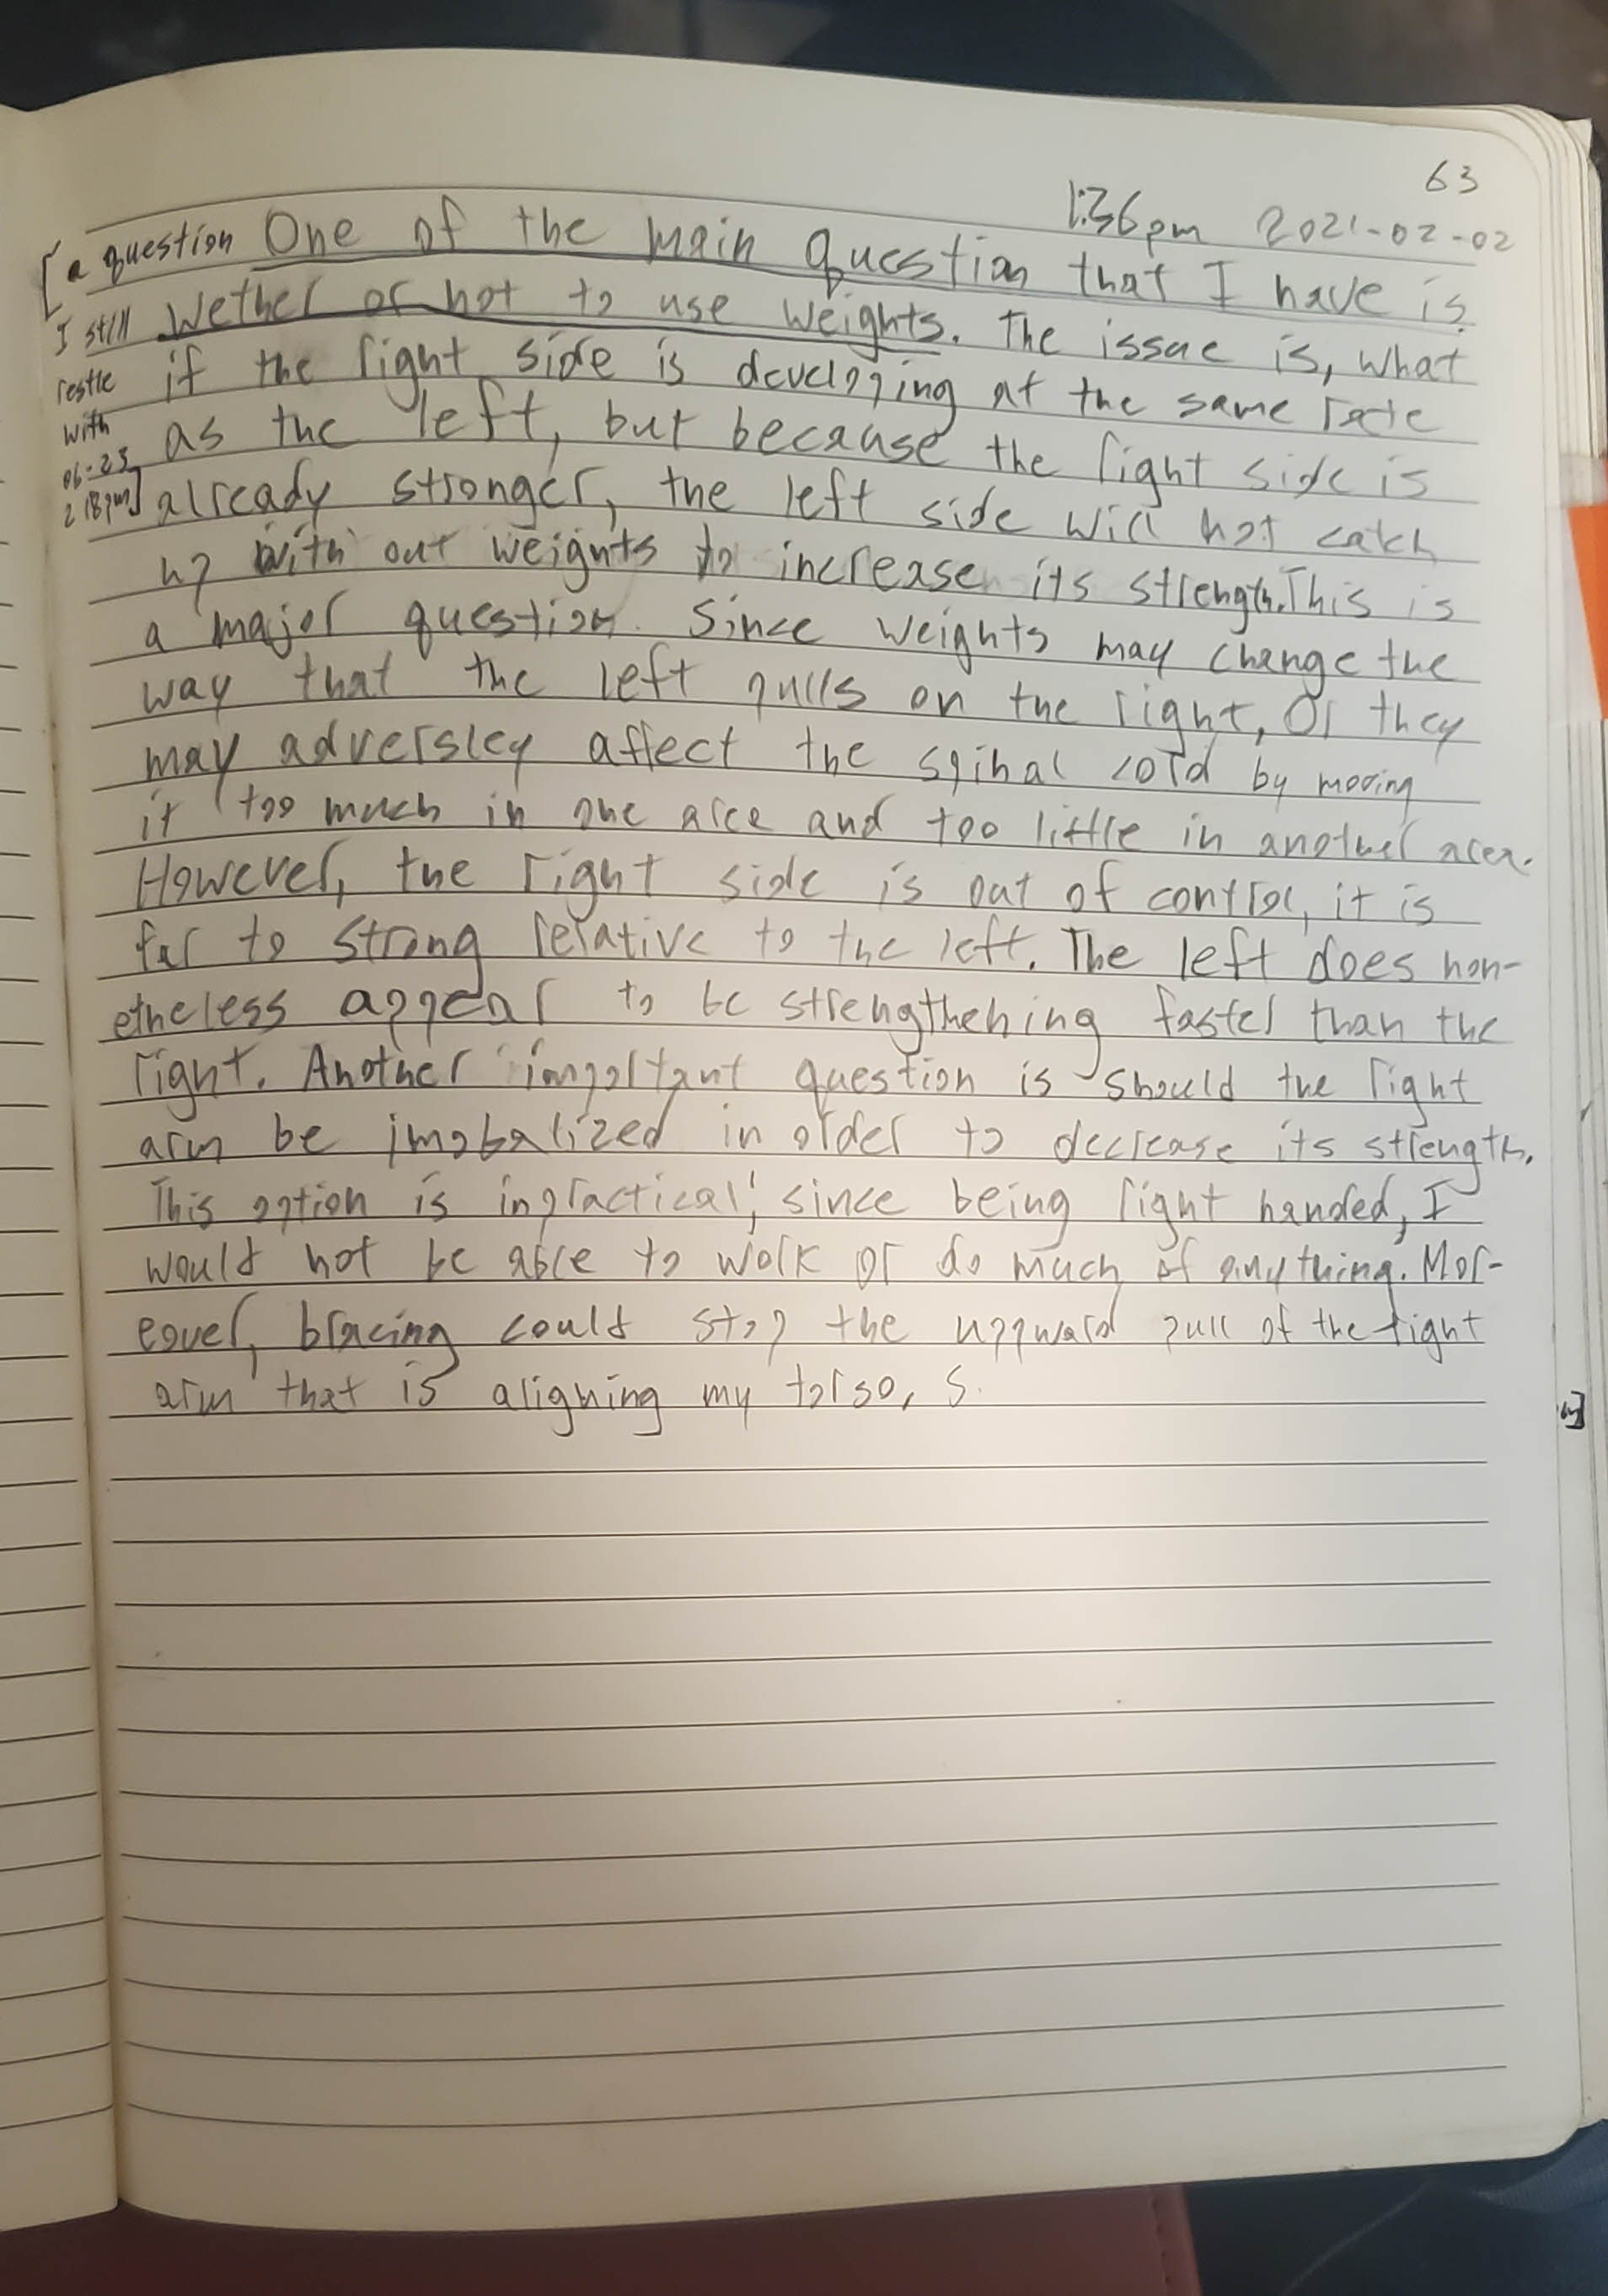 63
1:36pm 2021-02-02
[a question
I still
restle
with
06-23
2:18pm]
One of the main question that I have is
wether or not to use weights. The issue is, what
if the right side is developing at the same rate
as the left, but because the right side is
already stronger, the left side will not catch
up with out weights to increase its strength. This is
a major question. Since weights may change the
way that the left pulls on the right, or they
may adversley affect the spinal cord by moving
it too much in one area and too little in another area.
However, the right side is out of control, it is
far to strong relative to the left. The left does non-
etheless appear to be strengthening faster than the
right. Another important question is should the right
arm be imobalized in order to decrease its strength.
This option is inpractical, since being right handed, I
would not be able to work or do much of anything. Mor-
eover, bracing could stop the uppward pull of the right
arm that is aligning my torso, s.